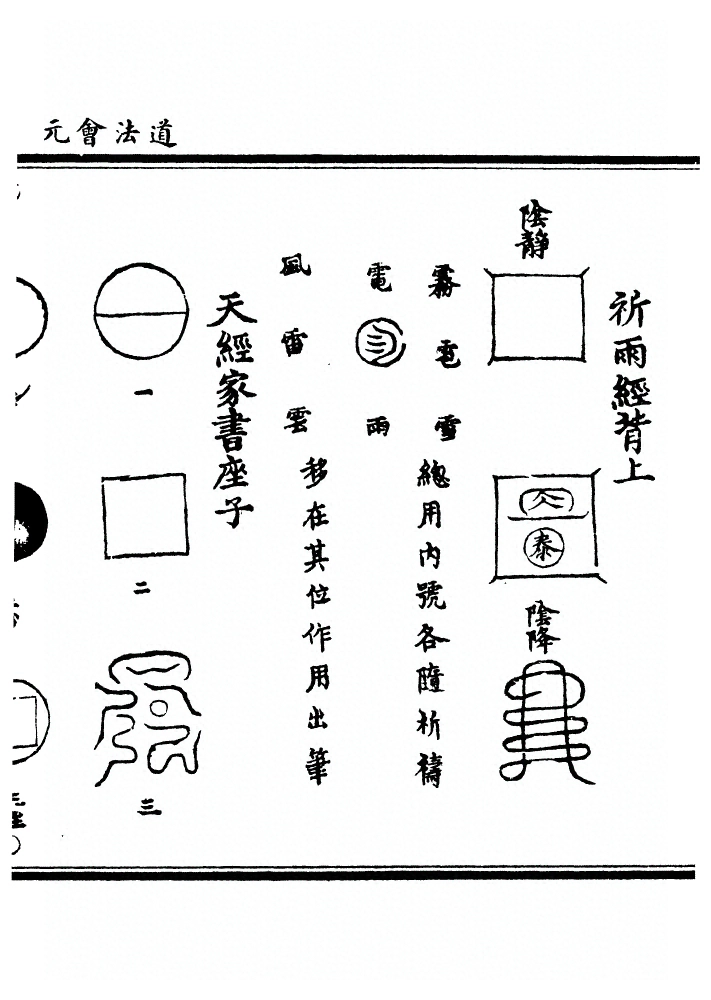 道法會元
祈雨經背上
陰靜
泰
陰降
霧雹雪
總用內號各隨祈禱
電
雨
風雷雲
移在其位作用出筆
天經家書座子
一
二
三